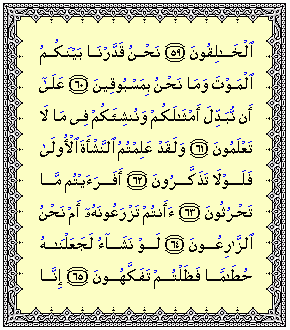 ٱلْخَـٰلِقُونَ ﴿٥٩﴾ نَحْنُ قَدَّرْنَا بَيْنَكُمُ
ٱلْمَوْتَ وَمَا نَحْنُ بِمَسْبُوقِينَ ﴿٦٠﴾ عَلَىٰٓ
أَن نُّبَدِّلَ أَمْثَـٰلَكُمْ وَنُنشِئَكُمْ فِى مَا لَا
تَعْلَمُونَ ﴿٦١﴾ وَلَقَدْ عَلِمْتُمُ ٱلنَّشْأَةَ ٱلْأُولَىٰ
فَلَوْلَا تَذَكَّرُونَ ﴿٦٢﴾ أَفَرَءَيْتُم مَّا
تَحْرُثُونَ ﴿٦٣﴾ ءَأَنتُمْ تَزْرَعُونَهُۥٓ أَمْ نَحْنُ
ٱلزَّٰرِعُونَ ﴿٦٤﴾ لَوْ نَشَآءُ لَجَعَلْنَـٰهُ
حُطَـٰمًا فَظَلْتُمْ تَفَكَّهُونَ ﴿٦٥﴾ إِنَّا